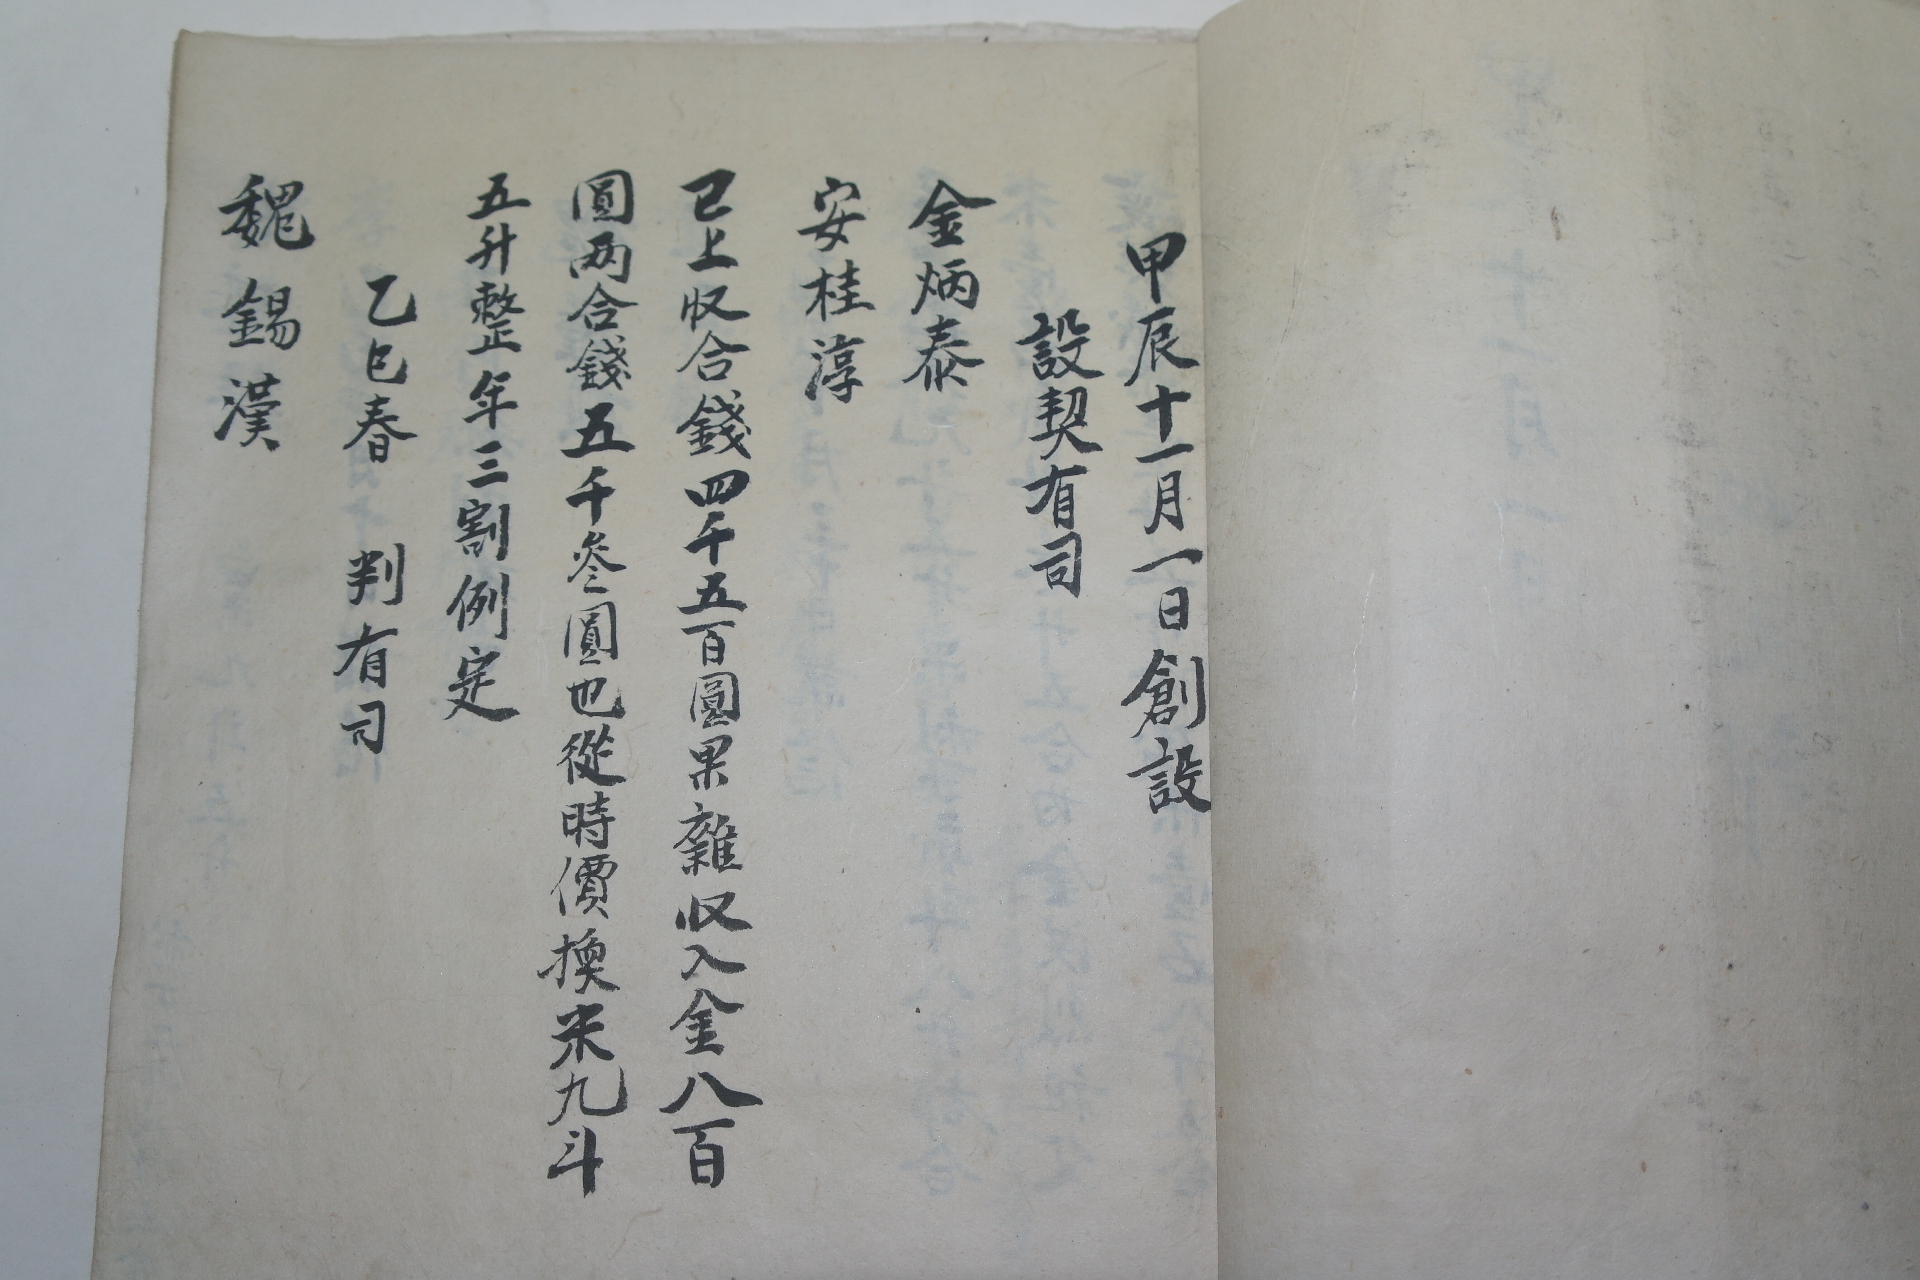 甲辰十一月一日創設
設契有司
金炳泰
安桂淳
已上収合錢四千五百圓果雜収入金八百
圓兩合錢五千叁圓也從時價換米九斗
五升整年三割例定
乙巳春 判有司
魏錫漢